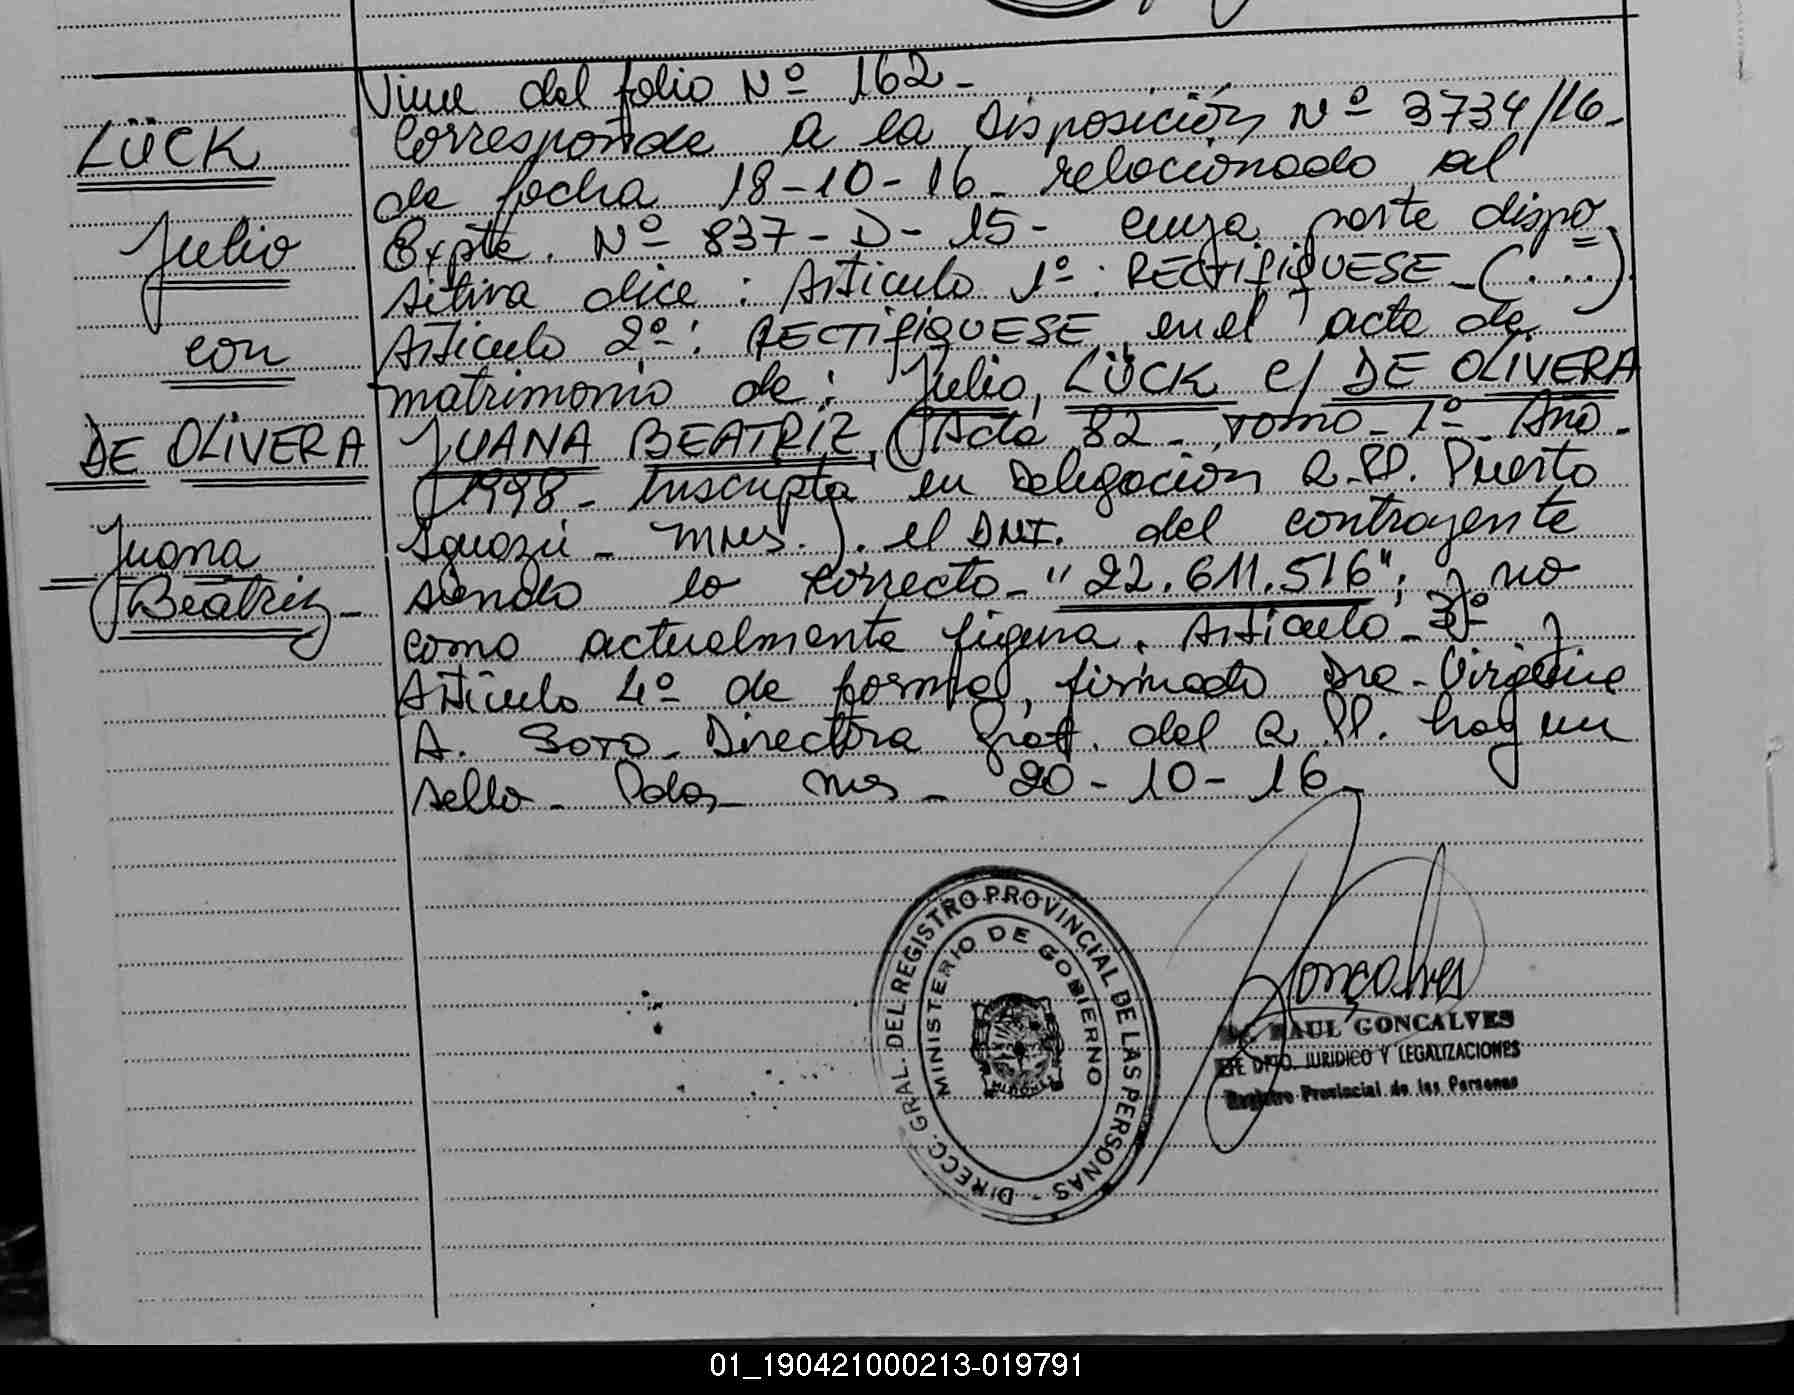 LÜCK
Julio
con
DE OLIVERA
Juana
Beatriz -
Viene del folio Nº 162 -
Corresponde a la Disposición Nº 3734/16 -
de fecha 18-10-16 - relacionado al
Expte. Nº 837 - D - 15 - cuya parte dispo
sitiva dice: Artículo 1º: RECTIFIQUESE - (...)
Artículo 2º: RECTIFIQUESE, en el acta de
matrimonio de: Julio, LÜCK c/ DE OLIVERA
JUANA BEATRIZ, (Acta 82 - Tomo - 1º - Año -
1998 - Inscripta en Delegación R.PP. Puerto
Iguazú - Mnes.). el DNI. del contrayente
siendo lo correcto - "22.611.516"; y no
como actualmente figura. Artículo - 3º y
Artículo 4º de forma, firmado Dra - Virginia
A. Soto - Directora Gral. del R.PP. hay un
sello - Pdas - Mnes - 20-10-16 -
DIRECC. GRAL. DEL REGISTRO PROVINCIAL DE LAS PERSONAS -
MINISTERIO DE GOBIERNO
MISIONES
Gonçalves
RAUL GONCALVES
JEFE DPTO. JURIDICO Y LEGALIZACIONES
Registro Provincial de las Personas
01_190421000213-019791